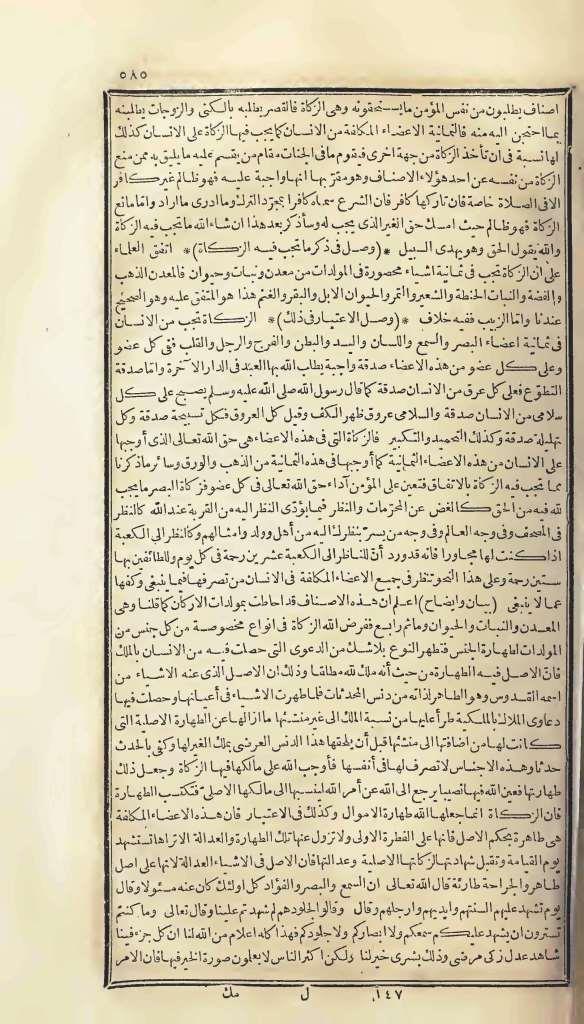 ٥٨٥
اصناف يطلبون من نفس المؤمن ما يستحقونه وهى الزكاة فالقصر يطالبه بالسكنى والزوجات يطالبنه
بما احتجن اليه منه فالثمانية الاعضاء المكلفة من الانسان كما يجب فيها الزكاة على الانسان كذلك
لها نسبة فى أن تأخذ الزكاة من جهة اخرى فيقوم ما فى الجنات مقام من يقسم عليه ما يليق به ممن منع
الزكاة من نفسه عن احد هؤلاء الاصناف وهو مقرّ بها انها واجبة عليه فهو ظالم غير كافر
الا فى الصلاة خاصة فان تاركها كافر فان الشرع سماه كافرا بمجرّد الترك وما ادرى ما اراد واما مانع
الزكاة فهو ظالم حيث امسك حق الغير الذى يجب له وسأذكر بعد هذا ان شاء الله ما تجب فيه الزكاة
والله يقول الحق وهو يهدى السبيل * (وصل فى ذكر ما تجب فيه الزكاة) * اتفق العلماء
على ان الزكاة تجب فى ثمانية اشياء محصورة فى المولدات من معدن ونبات وحيوان فالمعدن الذهب
والفضة والنبات الحنطة والشعير والتمر والحيوان الابل والبقر والغنم هذا هو المتفق عليه وهو الصحيح
عندنا واما الزبيب ففيه خلاف * (وصل الاعتبار فى ذلك) * الزكاة تجب من الانسان
فى ثمانية اعضاء البصر والسمع واللسان واليد والبطن والفرج والرجل والقلب ففى كل عضو
وعلى كل عضو من هذه الاعضاء صدقة واجبة يطلب الله بها العبد فى الدار الآخرة واما صدقة
التطوّع فعلى كل عرق من الانسان صدقة كما قال رسول الله صلى الله عليه وسلم يصبح على كل
سلامى من الانسان صدقة والسلامى عروق ظهر الكف وقيل كل العروق فكل تسبيحة صدقة وكل
تهليلة صدقة وكذلك التحميد والتكبير فالزكاة التى فى هذه الاعضاء هى حق الله تعالى الذى أوجبها
على الانسان من هذه الاعضاء الثمانية كما أوجبها فى هذه الثمانية من الذهب والورق وسائر ما ذكرنا
مما تجب فيه الزكاة بالاتفاق فتعين على المؤمن آداء حق الله تعالى فى كل عضو فزكاة البصر ما يجب
لله فيه من الحق كالغض عن المحرّمات والنظر فيما يؤدّى النظر اليه من القربة عند الله كالنظر
فى المصحف وفى وجه العالم وفى وجه من يسرّ بنظرك اليه من أهل وولد وامثالهم وكالنظر الى الكعبة
اذا كنت لها مجاورا فانه قد ورد أنّ للناظر الى الكعبة عشرين رحمة فى كل يوم وللطائفين بها
ستين رحمة وعلى هذا النحو تنظر فى جميع الاعضاء المكلفة فى الانسان من تصرفها فيما ينبغى وكفها
عما لا ينبغى (بيان وايضاح) اعلم ان هذه الاصناف قد احاطت بمولدات الاركان كما قلنا وهى
المعدن والنبات والحيوان وما ثم رابع ففرض الله الزكاة فى انواع مخصوصة من كل جنس من
المولدات لطهارة الجنس فتطهر النوع بلا شك من الدعوى التى حصلت فيه من الانسان بالملك
فان الاصل فيه الطهارة من حيث أنه ملك لله مطلقا وذلك ان الاصل الذى عنه الاشياء من
اسمه القدوس وهو الطاهر لذاته من دنس المحدثات فلما ظهرت الاشياء فى أعيانها وحصلت فيها
دعاوى الملاك بالملكية طرأ عليها من نسبة الملك الى غير منشئها ما ازالها عن الطهارة الاصلية التى
كانت لها من اضافتها الى منشئها قبل أن يلحقها هذا الدنس العرضى بملك الغير لها وكفى بالحدث
حدثا وهذه الاجناس لا تصرف لها فى أنفسها فأوجب الله على مالكها فيها الزكاة وجعل ذلك
طهارتها فعين الله فيها نصيبا يرجع الى الله عن أمر الله لينسبها الى مالكها الاصلىّ فتكتسب الطهارة
فان الزكاة انما جعلها الله طهارة الاموال وكذلك فى الاعتبار فان هذه الاعضاء المكلفة
هى طاهرة بحكم الاصل فانها على الفطرة الاولى ولا تزول عنها تلك الطهارة والعدالة الا تراها تستشهد
يوم القيامة وتقبل شهادتها لزكاتها الاصلية وعدالتها فان الاصل فى الاشياء العدالة لانها على اصل
طاهر والجراحة طارئة قال الله تعالى ان السمع والبصر والفؤاد كل اولئك كان عنه مسئولا وقال
يوم تشهد عليهم السنتهم وايديهم وارجلهم وقال وقالوا لجلودهم لم شهدتم علينا وقال تعالى وما كنتم
تسترون ان يشهد عليكم سمعكم ولا ابصاركم ولا جلودكم فهذا كله اعلام من الله لنا ان كل جزء فينا
شاهد عدل زكى مرضى وذلك بشرى خير لنا ولكن اكثر الناس لا يعلمون صورة الخير فيها فان الامر
١٤٧ ل مك